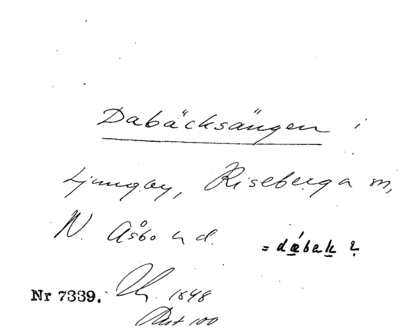 Dabäcksängen i
Ljungby, Riseberga sn,
N. Åsbo hd.
= dábak ?
Nr 7339. 1848
Akt 100